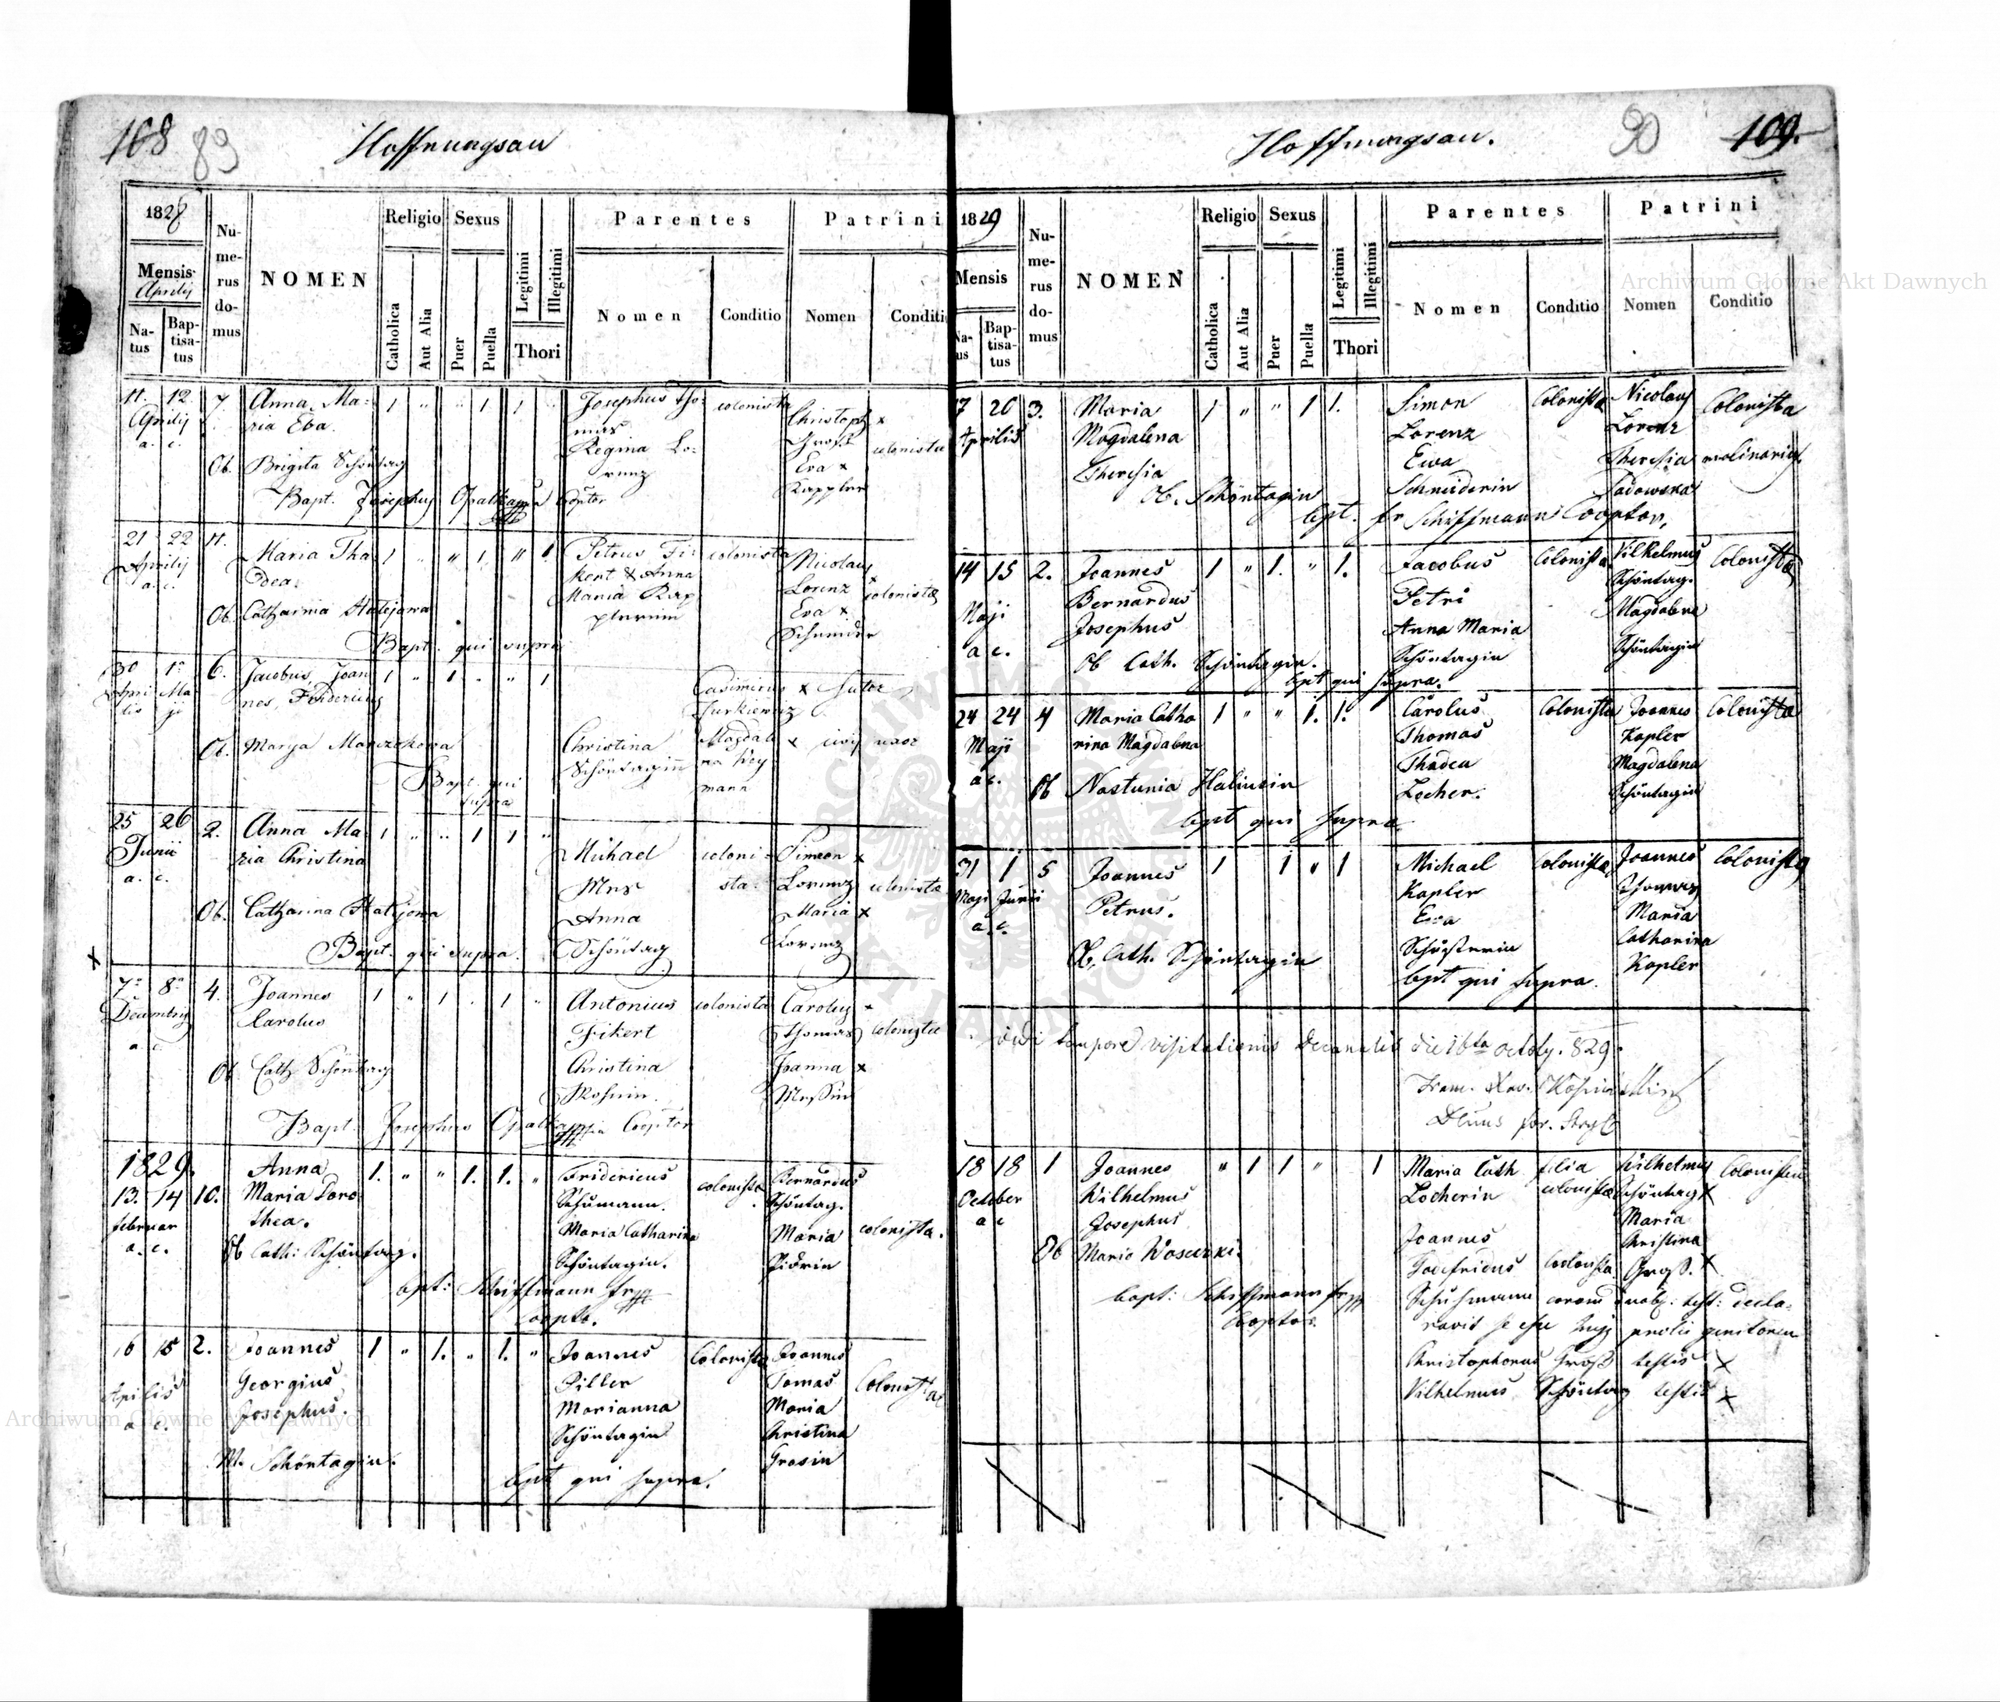 168 89 Hoffnungsau
1828
Mensis
Aprilis
Natus
Baptisatus
Numerus domus
NOMEN
Religio
Catholica
Aut Alia
Sexus
Puer
Puella
Legitimi
Illegitimi
Thori
Parentes
Nomen
Conditio
Patrini
Nomen
Conditi
11. 12 7. Anna Ma- 1 " " 1 1 " Josephus Tho- colonista Christoph x
Aprilis ria Eva. mas Gross
a. c. Regina Lo- Eva x colonistae
Ob. Brigita Schöntag renz Kappler
Bapt. Josephus Cooptor
21 22 11. Maria Tha- 1 " " 1 " 1 Petrus Fi- colonista Nicolaus
Aprilis dea. kert & Anna Lorenz x colonistae
a. c. Maria Kap- Eva x
Ob. Catharina Matejowa plerin Schneider
Bapt. qui supra
30 1 6. Jacobus, Joan- 1 " 1 " " 1 Casimirus x Sutor
Aprilis Maji nes, Fridericus
Ob. Marya Christina Magdale- x uxor
Schöntagin na Hey-
Bapt. qui mann
supra
25 26 2. Anna Ma- 1 " " 1 1 " Michael coloni- Simeon x
Junii ria Christina sta. Lorenz colonista
a. c. Anna Maria x
Ob. Catharina Matejowa Schöntag Lorenz
Bapt. qui supra.
7 8 4. Joannes 1 " 1 " 1 " Antonius colonista Carolus x
Decembris Carolus Fikert Thomas colonistae
a. c. Christina Joanna x
Ob Cath Schöntag
Bapt. Josephus Cooptor
1829. Anna 1. " " 1. 1. " Fridericus colonista Bernardus
13. 14 10. Maria Doro- Schumann. Schöntag.
februar thea. Maria Catharina Maria colonista.
a. c. Ob Cath: Schöntag. Schöntagin.
bapt: Schiffmann
coopto.
16 18 2. Joannes 1 " 1. " 1. " Joannes Colonista Joannes
Aprilis Georgius Piller Tomas Colonista
a c. Josephus. Marianna Maria
Schöntagin Christina
M. Schöntagin. Grosin
bpt qui supra.
Hoffnungsau. 90 109.
1829
Mensis
Baptisatus
Numerus domus
NOMEN
Religio
Catholica
Aut Alia
Sexus
Puer
Puella
Legitimi
Illegitimi
Thori
Parentes
Nomen
Conditio
Patrini
Nomen
Conditio
20 3. Maria 1 " " 1 1. Simon Colonista Nicolaus Colonista
Aprilis Magdalena Lorenz Lorenz
Theresia Ewa Theresia molinarius
Ob. Schöntagin Schneiderin Sadowska
bpt. fr Schiffmann Cooptor.
14 15 2. Joannes 1 " 1. " 1. Jacobus Colonista Vilhelmus Colonista
Maji Bernardus Petri Schöntag.
a c. Josephus Anna Maria Magdalena
Ob Cath. Schöntagin. Schöntagin Schöntagin
bpt qui supra.
24 24 4 Maria Catha 1 " " 1. 1. Carolus Colonista Joannes Colonista
Maji rina Magdalena Thomas Kapler
a c. Thadea Magdalena
Ob Nastunia Locher. Schöntagin
bpt qui supra
31 1 5 Joannes 1 1 " 1 Michael Colonista Joannes Colonista
Maji Junii Petrus. Kapler Thomas
a. c. Ewa Maria
Ob. Cath. Schöntagin Catharina
bpt qui supra. Kapler
vidi tempore visitationis Decanalis die 16ta octobr. 829.
18 18 1 Joannes " 1 1 " 1 Maria Cath filia Wilhelmus Colonistae
October Wilhelmus Locherin colonistae Schöntag x
a c Josephus Maria
Joannes Christina
Ob Maria Godfridus Colonista Groß. x
bapt: Schiffmann Schuhmann coram test: decla-
Cooptor. ravit se esse hujus prolis genitorem
Christophorus Groß testis x
Vilhelmus Schöntag testis x
Archiwum Główne Akt Dawnych
Archiwum Główne Akt Dawnych